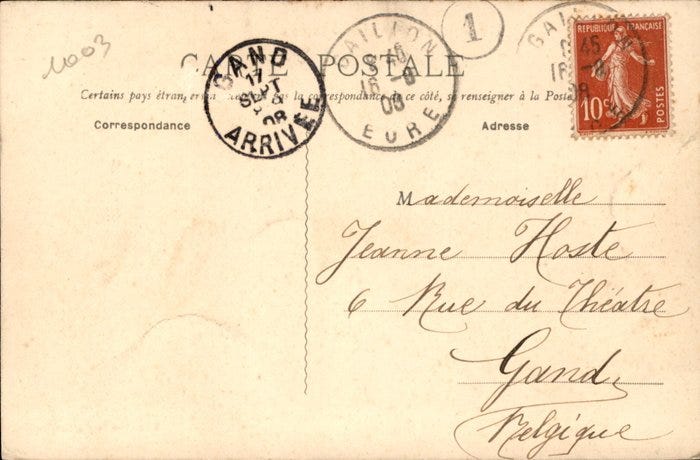 1003
1
CARTE POSTALE
Certains pays étrangers la correspondance de ce côté, se renseigner à la Poste
Correspondance
Adresse
GAND
17
SEPT
08
ARRIVÉE
GAILLON
16 -9
08
EURE
GAILLON
45
16 -9
08
RÉPUBLIQUE FRANÇAISE
10c
POSTES
Mademoiselle
Jeanne Hoste
6 Rue du Théatre
Gand
Belgique